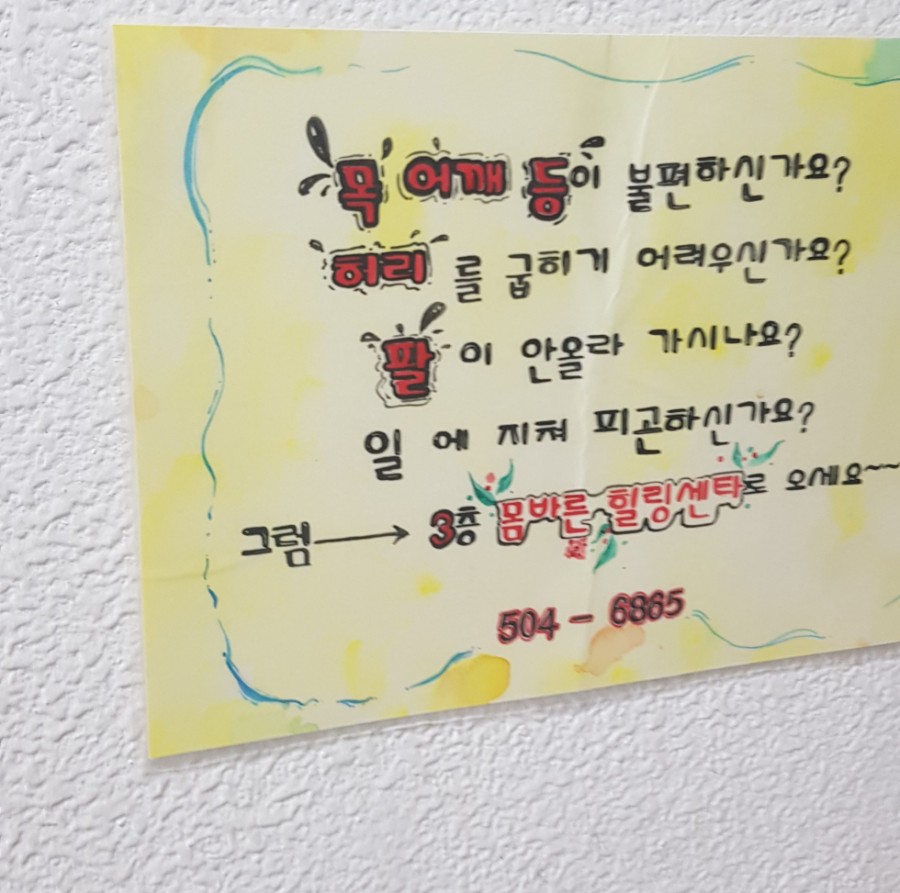 목 어깨 등이 불편하신가요?
허리를 굽히기 어려우신가요?
팔이 안올라 가시나요?
일에 지쳐 피곤하신가요?
그럼 → 3층 몸바른 힐링센타로 오세요~~
504 - 6865